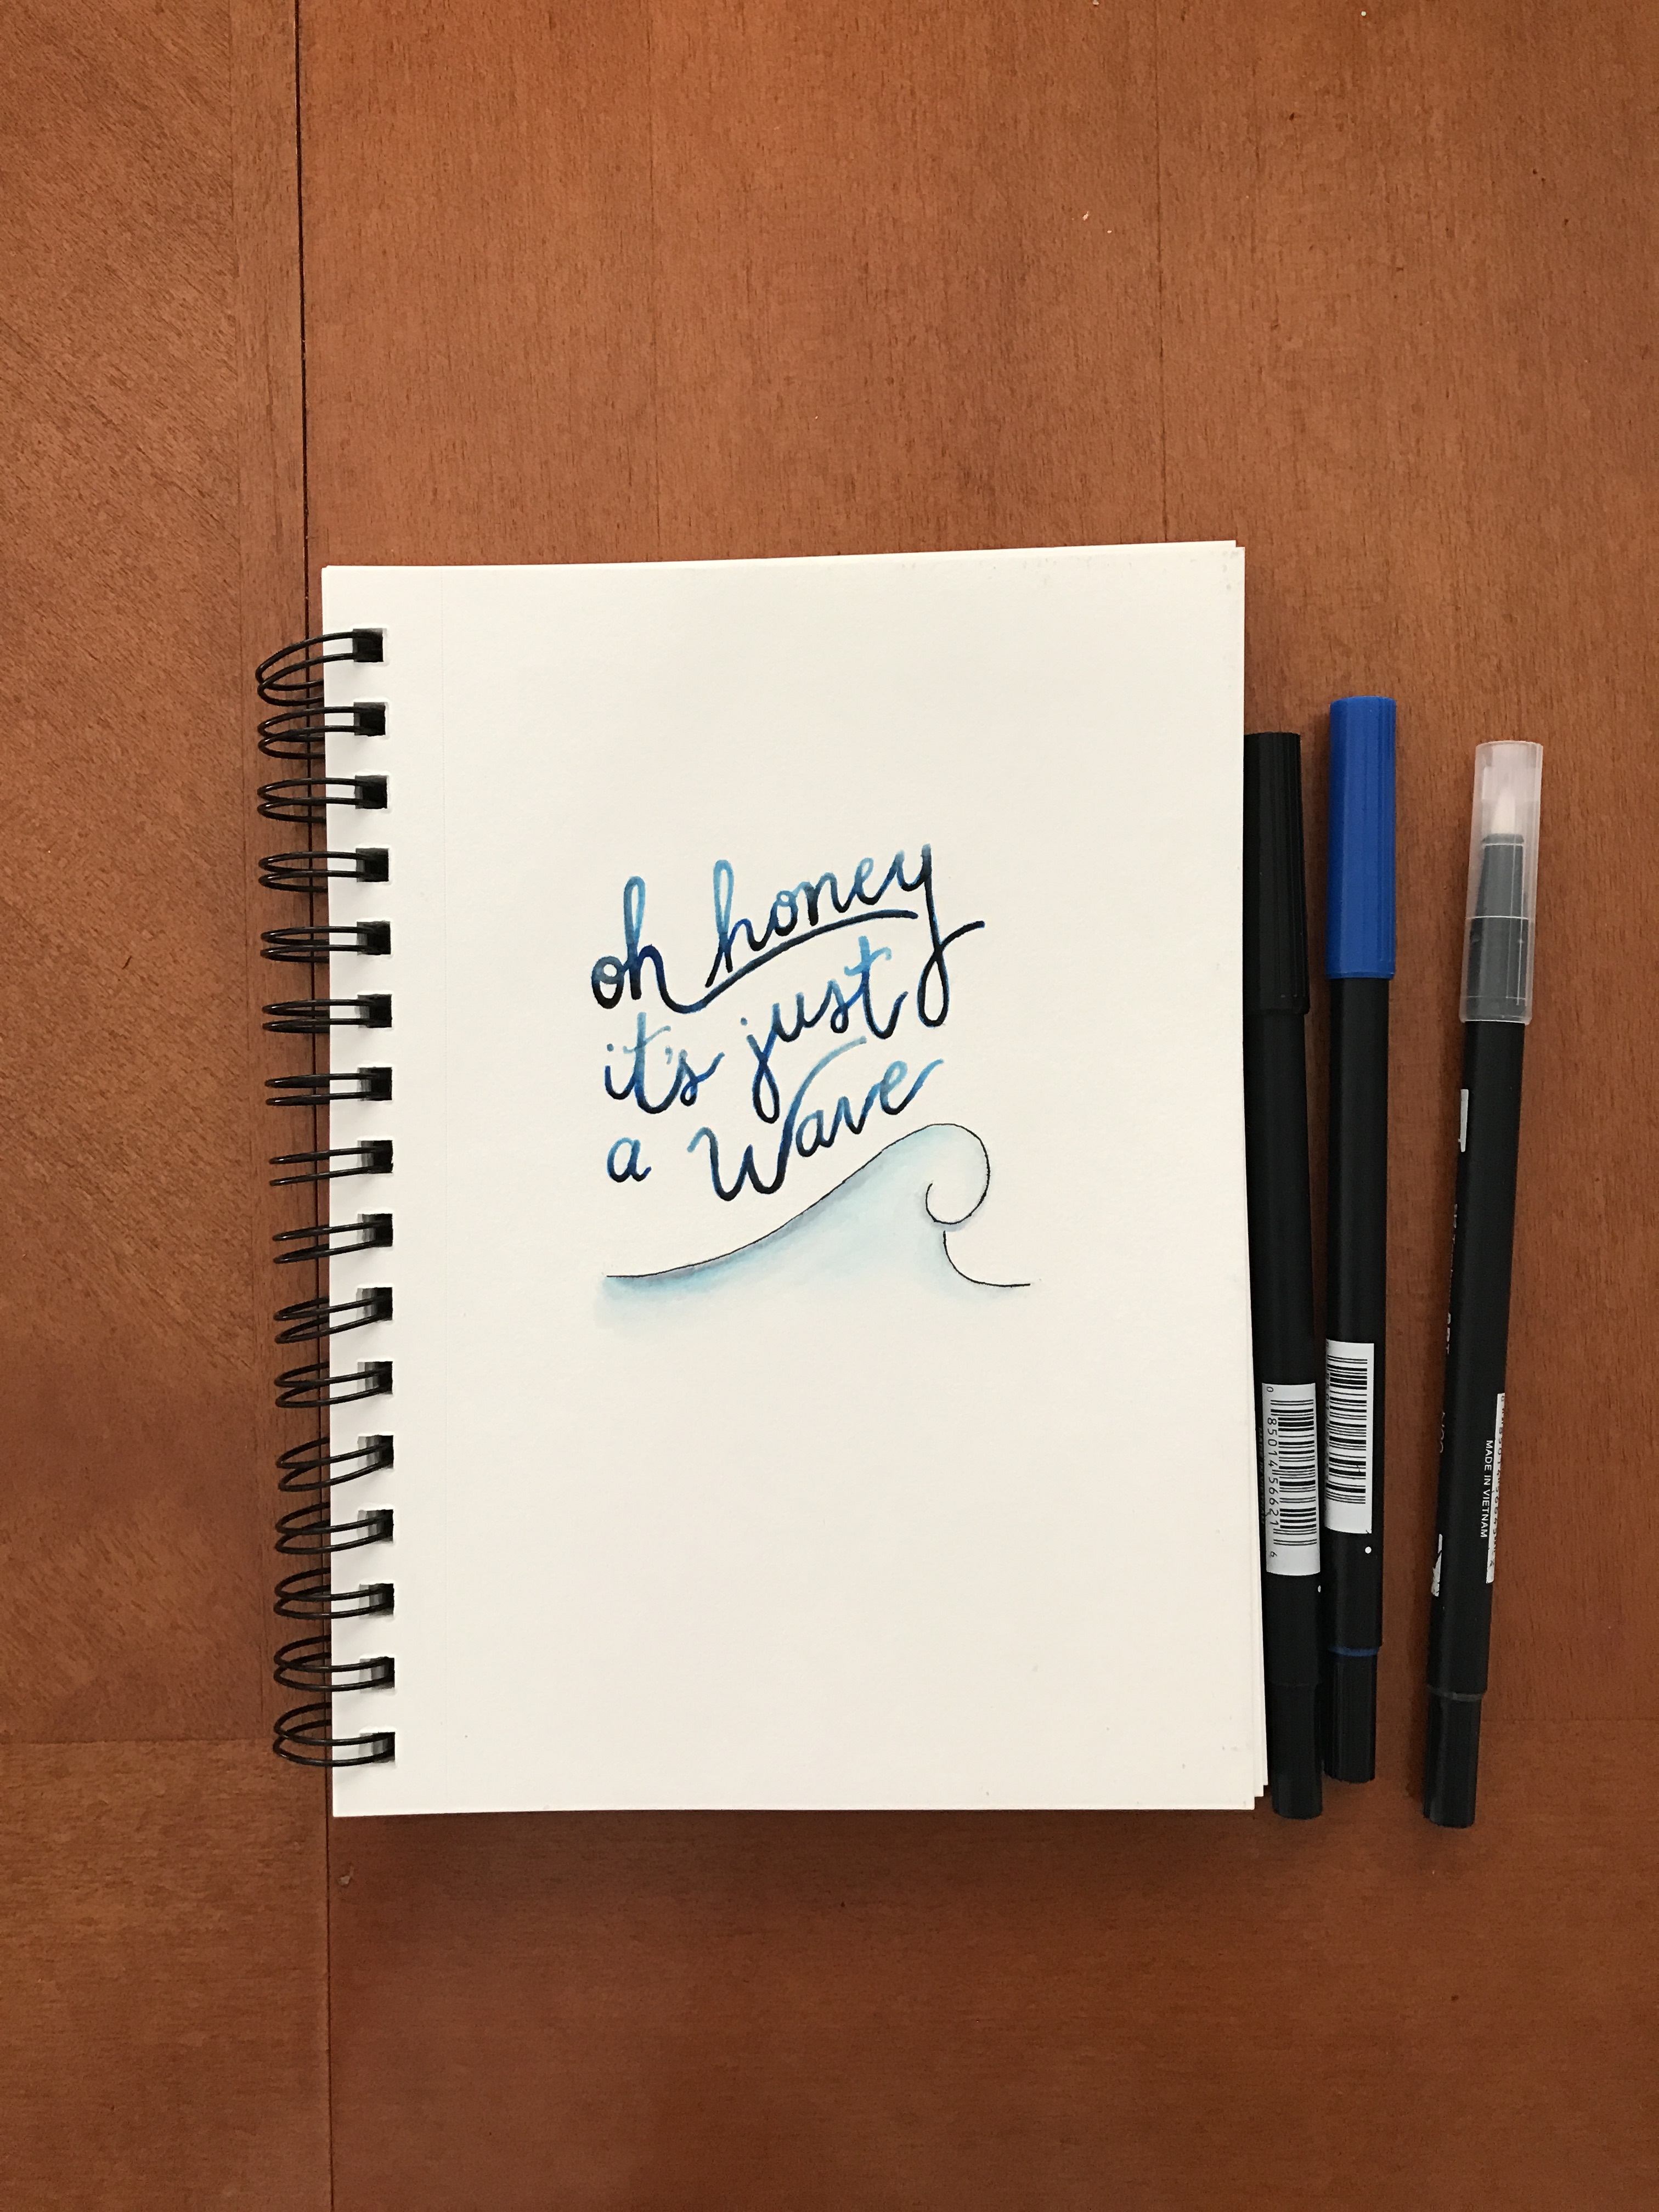 oh honey
it's just
a wave
0 85014 56621 6
MADE IN VIETNAM